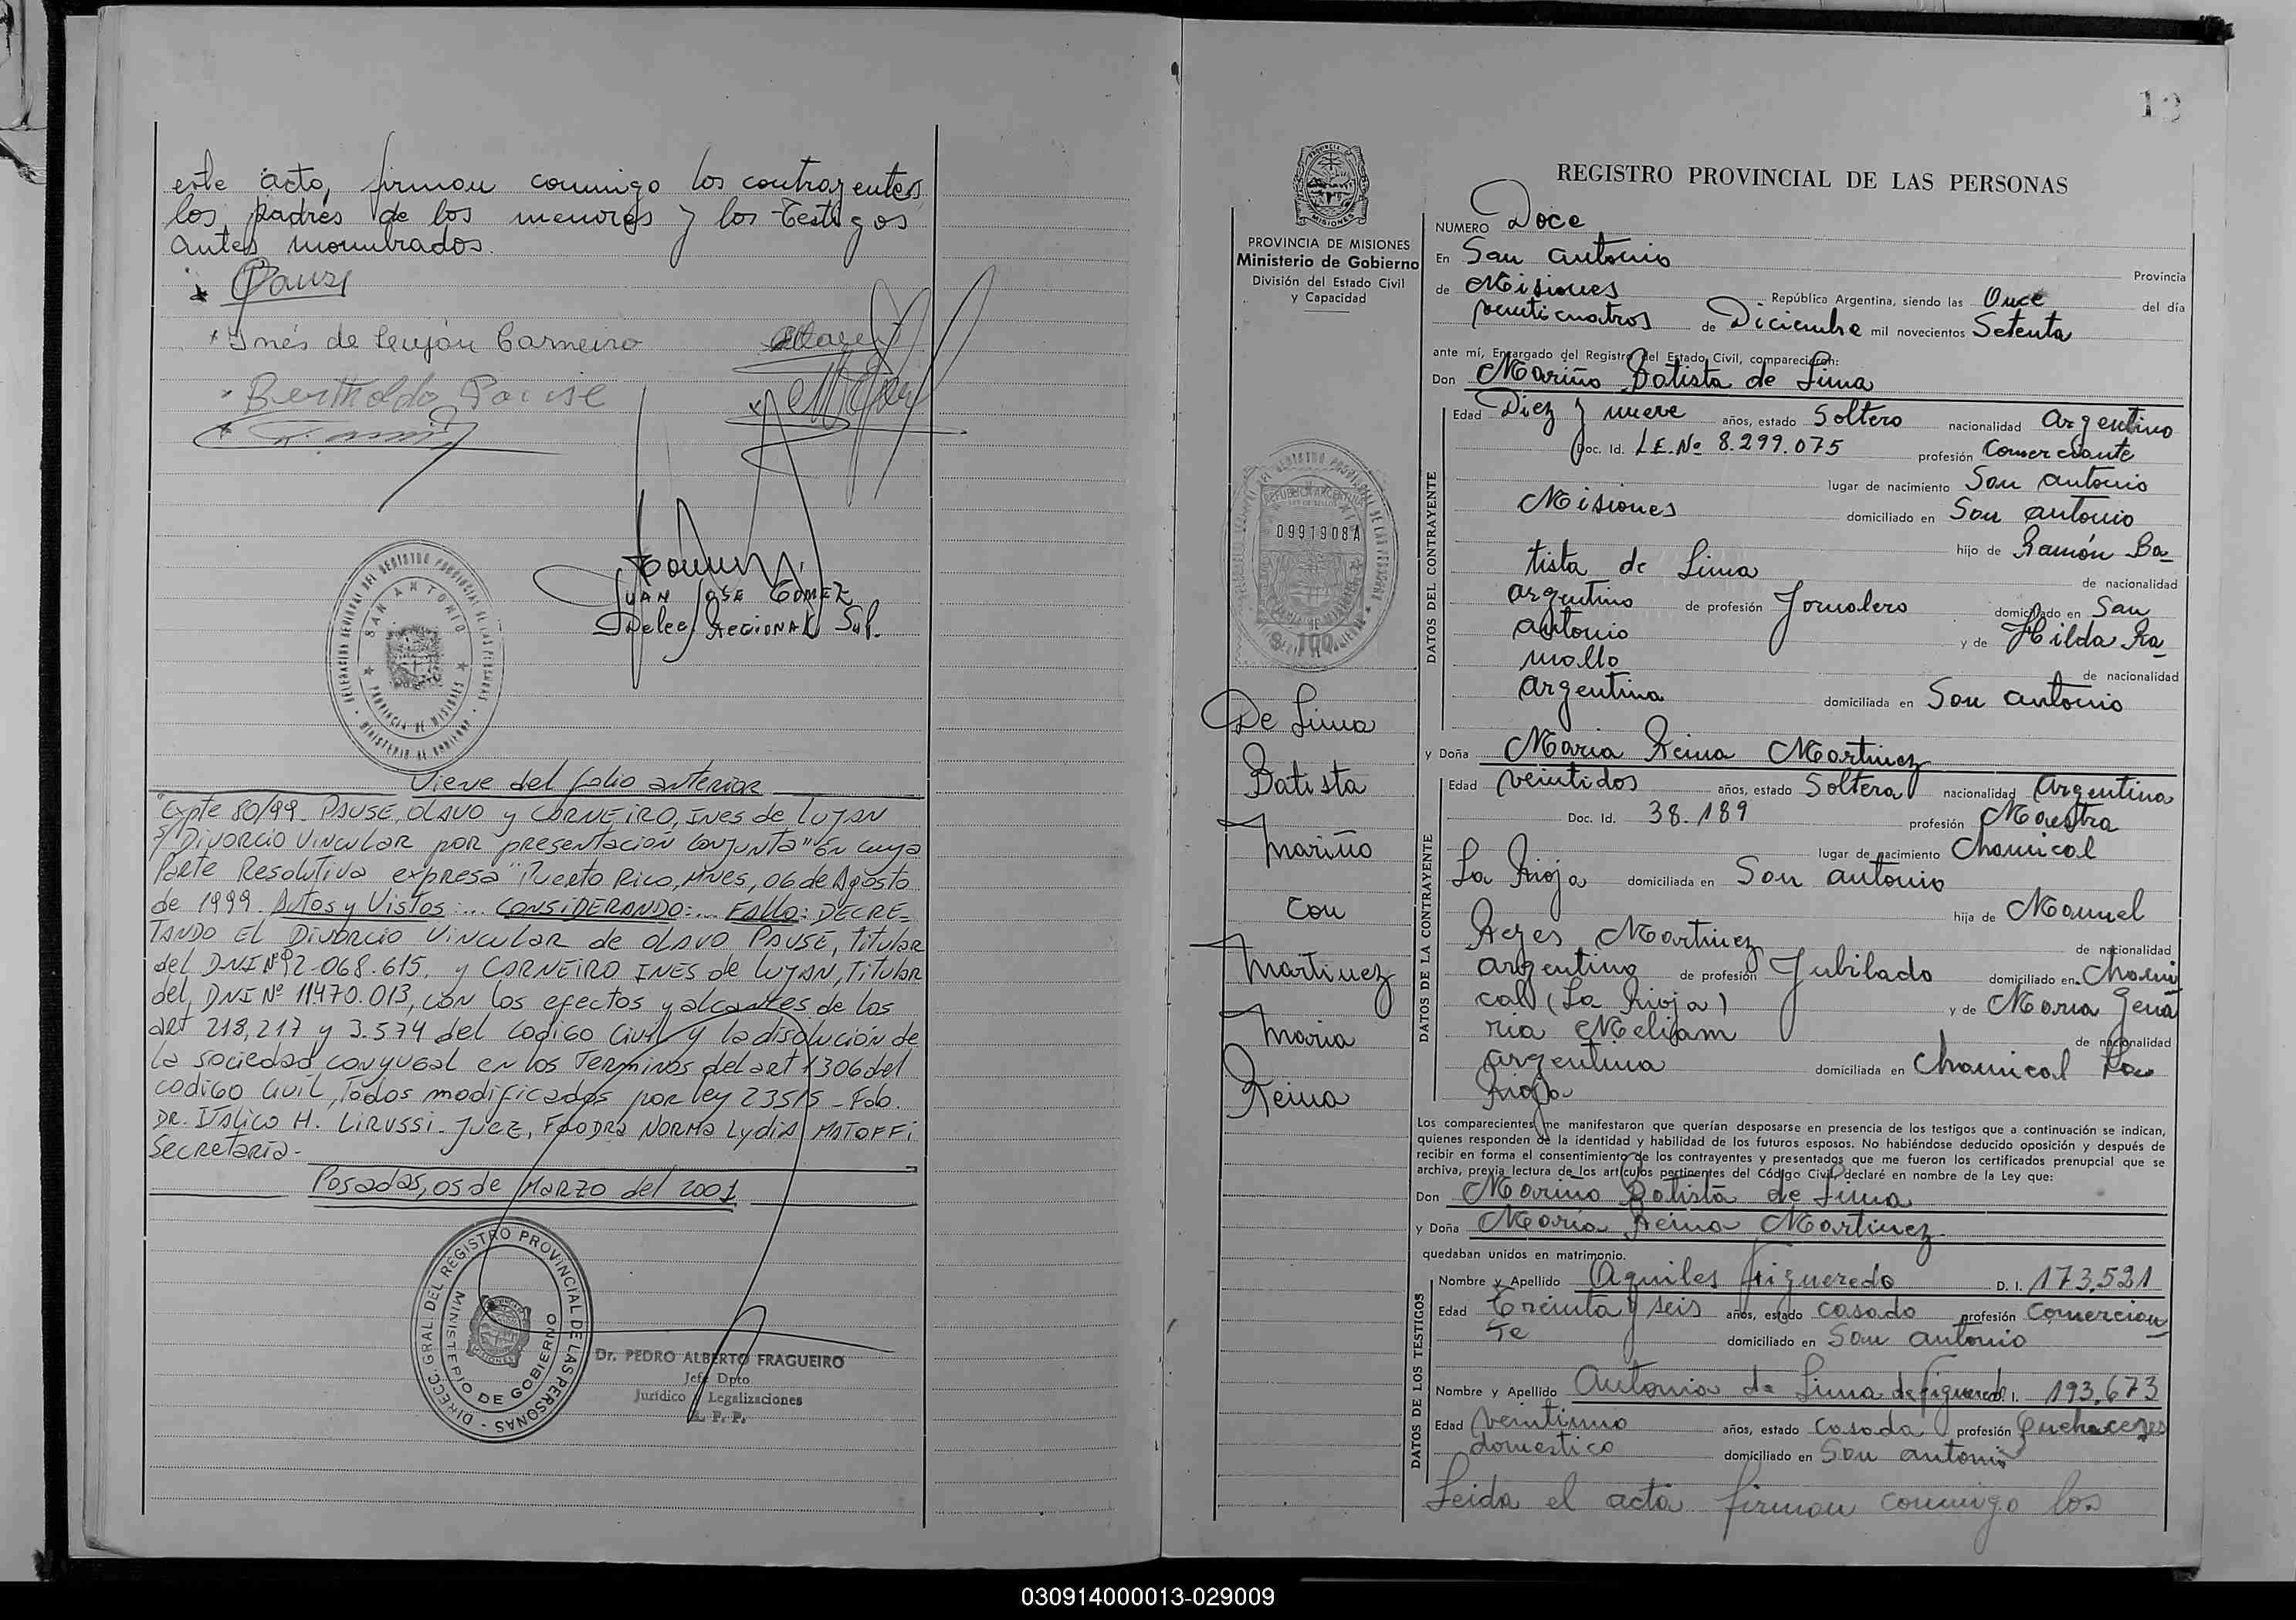 este acto, firman conmigo los contrayentes,
los padres de los menores y los testigos
antes nombrados.
Pause
Inés de Luján Carneiro
Bertholdo Pause
JUAN JOSE GOMEZ
Deleg. REGIONAL Sup.
DELEGACION SECCIONAL DEL REGISTRO PROVINCIAL DE LAS PERSONAS
SAN ANTONIO
PROVINCIA DE MISIONES
MINISTERIO DE GOBIERNO
Viene del folio anterior
"Expte 80/99 PAUSE, OLAVO y CARNEIRO, INES de LUJAN
s/ Divorcio Vincular por presentación conjunta" En cuya
Parte Resolutiva expresa "Puerto Rico, Mnes, 06 de Agosto
de 1999. Autos y Vistos:... CONSIDERANDO:... FALLO: DECRE-
TANDO EL Divorcio Vincular de OLAVO PAUSE, titular
del DNI Nº 12.068.615, y CARNEIRO INES de LUJAN, Titular
del, DNI Nº 11470.013, con los efectos y alcantes de los
art 218, 217 y 3.574 del Codigo Civil y la disolución de
la sociedad conyugal en los Terminos del art 1306 del
codigo Civil, Todos modificados por ley 23515 - Fdo.
DR. ITALICO H. LIRUSSI - JUEZ, FDO DRA NORMA LYDIA MATOFFI
Secretaria -
Posadas, 05 de MARZO del 2001
DIRECC. GRAL. DEL REGISTRO PROVINCIAL DE LAS PERSONAS
MINISTERIO DE GOBIERNO
Dr. PEDRO ALBERTO FRAGUEIRO
Jefe Dpto
Jurídico y Legalizaciones
R. P. P.
PROVINCIA DE MISIONES
Ministerio de Gobierno
División del Estado Civil
y Capacidad
REPUBLICA ARGENTINA
0991908A
$ 100
De Lima
Batista
Mariño
con
Martinez
Maria
Reina
REGISTRO PROVINCIAL DE LAS PERSONAS
NUMERO Doce
En San Antonio Provincia
de Misiones República Argentina, siendo las Once del día
veinticuatros de Diciembre mil novecientos Setenta
ante mí, Encargado del Registro del Estado Civil, comparecieron:
Don Mariño Batista de Lima
DATOS DEL CONTRAYENTE
Edad Diez y nueve años, estado Soltero nacionalidad Argentino
Doc. Id. L.E. Nº 8.299.075 profesión Comerciante
lugar de nacimiento San Antonio
Misiones domiciliado en San Antonio
hijo de Ramón Ba-
tista de Lima de nacionalidad
argentino de profesión Jornalero domiciliado en San
Antonio y de Hilda Ra-
mallo de nacionalidad
Argentina domiciliada en San Antonio
y Doña Maria Reina Martinez
DATOS DE LA CONTRAYENTE
Edad veintidos años, estado Soltera nacionalidad Argentina
Doc. Id. 38.189 profesión Maestra
lugar de nacimiento Chamical
La Rioja domiciliada en San Antonio
hija de Manuel
Reyes Martinez de nacionalidad
argentino de profesión Jubilado domiciliado en Chami
cal (La Rioja) y de Maria Gena
ria Meliam de nacionalidad
argentina domiciliada en Chamical La
Rioja
Los comparecientes me manifestaron que querían desposarse en presencia de los testigos que a continuación se indican,
quienes responden de la identidad y habilidad de los futuros esposos. No habiéndose deducido oposición y después de
recibir en forma el consentimiento de los contrayentes y presentados que me fueron los certificados prenupcial que se
archiva, previa lectura de los artículos pertinentes del Código Civil declaré en nombre de la Ley que:
Don Mariño Batista de Lima
y Doña Maria Reina Martinez
quedaban unidos en matrimonio.
DATOS DE LOS TESTIGOS
Nombre y Apellido Aquiles Figueredo D. I. 173.521
Edad Treinta y seis años, estado casado profesión Comercian
te domiciliado en San Antonio
Nombre y Apellido Antonia de Lima de Figueredo D. I. 193.673
Edad Veintiuno años, estado casada profesión Quehaceres
domestico domiciliado en San Antonio
Leida el acta firman conmigo los
030914000013-029009